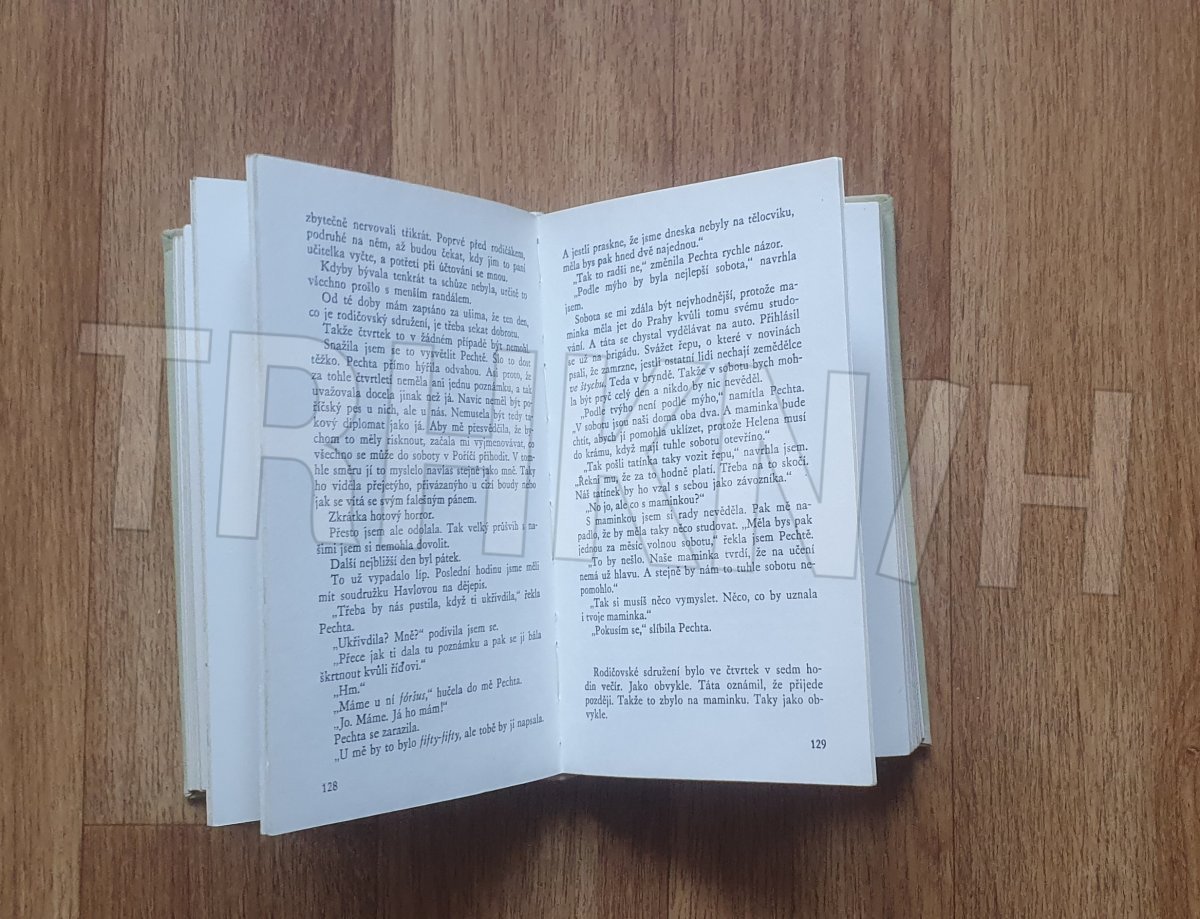 zbytečně nervovali třikrát. Poprvé před rodičákem,
podruhé na něm, až budou čekat, kdy jim to paní
učitelka vyčte, a potřetí při účtování se mnou.
Kdyby bývala tenkrát ta schůze nebyla, určitě to
všechno prošlo s menším randálem.
Od té doby mám zapsáno za ušima, že ten den,
co je rodičovský sdružení, je třeba sekat dobrotu.
Takže čtvrtek to v žádném případě být nemohl.
Snažila jsem se to vysvětlit Pechtě. Šlo to dost
těžko. Pechta přímo hýřila odvahou. Asi proto, že
za tohle čtvrtletí neměla ani jednu poznámku, a tak
uvažovala docela jinak než já. Navíc neměl být po-
říčský pes u nich, ale u nás. Nemusela být tedy ta-
kový diplomat jako já. Aby mě přesvědčila, že by-
chom to měly risknout, začala mi vyjmenovávat, co
všechno se může do soboty v Poříčí přihodit. V tom-
hle směru jí to myslelo navlas stejně jako mně. Taky
ho viděla přejetýho, přivázanýho u cizí boudy nebo
jak se vítá se svým falešným pánem.
Zkrátka hotový horror.
Přesto jsem ale odolala. Tak velký průšvih s na-
šimi jsem si nemohla dovolit.
Další nejbližší den byl pátek.
To už vypadalo líp. Poslední hodinu jsme měli
mít soudružku Havlovou na dějepis.
„Třeba by nás pustila, když ti ukřivdila,“ řekla
Pechta.
„Ukřivdila? Mně?“ podivila jsem se.
„Přece jak ti dala tu poznámku a pak se ji bála
škrtnout kvůli říďovi.“
„Hm.“
„Máme u ní fóršus,“ hučela do mě Pechta.
„Jo. Máme. Já ho mám!“
Pechta se zarazila.
„U mě by to bylo fifty-fifty, ale tobě by ji napsala.
128
A jestli praskne, že jsme dneska nebyly na tělocviku,
měla bys pak hned dvě najednou.“
„Tak to radši ne,“ změnila Pechta rychle názor.
„Podle mýho by byla nejlepší sobota,“ navrhla
jsem.
Sobota se mi zdála být nejvhodnější, protože ma-
minka měla jet do Prahy kvůli tomu svému studo-
vání. A táta se chystal vydělávat na auto. Přihlásil
se už na brigádu. Svážet řepu, o které v novinách
psali, že zamrzne, jestli ostatní lidi nechají zemědělce
ve štychu. Teda v bryndě. Takže v sobotu bych moh-
la být pryč celý den a nikdo by nic nevěděl.
„Podle tvýho není podle mýho,“ namítla Pechta.
„V sobotu jsou naši doma oba dva. A maminka bude
chtít, abych jí pomohla uklízet, protože Helena musí
do krámu, když mají tuhle sobotu otevříno.“
„Tak pošli tatínka taky vozit řepu,“ navrhla jsem.
„Řekni mu, že za to hodně platí. Třeba na to skočí.
Náš tatínek by ho vzal s sebou jako závozníka.“
„No jo, ale co s maminkou?“
S maminkou jsem si rady nevěděla. Pak mě na-
padlo, že by měla taky něco studovat. „Měla bys pak
jednou za měsíc volnou sobotu,“ řekla jsem Pechtě.
„To by nešlo. Naše maminka tvrdí, že na učení
nemá už hlavu. A stejně by nám to tuhle sobotu ne-
pomohlo.“
„Tak si musíš něco vymyslet. Něco, co by uznala
i tvoje maminka.“
„Pokusím se,“ slíbila Pechta.
Rodičovské sdružení bylo ve čtvrtek v sedm ho-
din večír. Jako obvykle. Táta oznámil, že přijede
později. Takže to zbylo na maminku. Taky jako ob-
vykle.
129
TRHKNIH